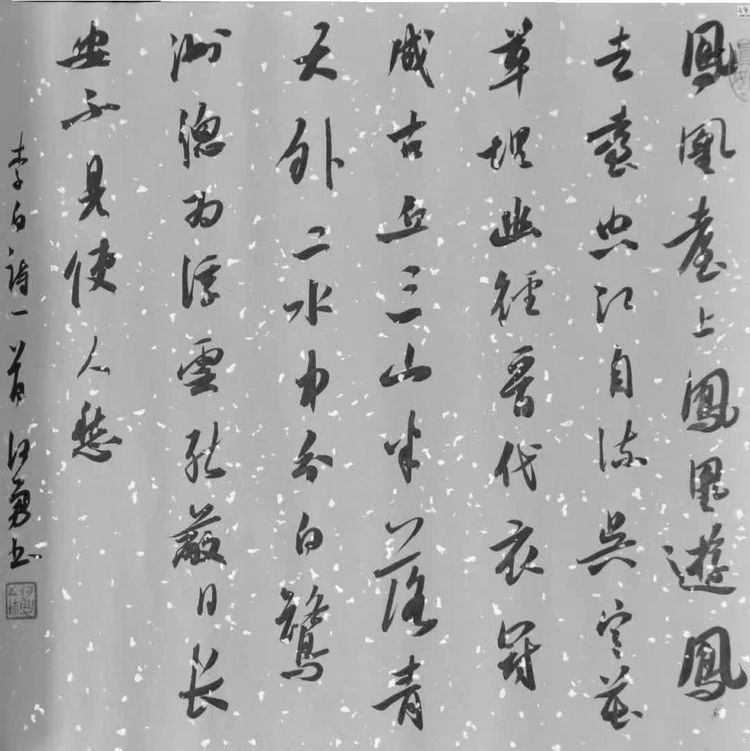 鳳凰臺上鳳凰遊鳳
去臺空江自流吳宮花
草埋幽徑晉代衣冠
成古丘三山半落青
天外二水中分白鷺
洲總為浮雲能蔽日長
安不見使人愁
李白詩一首 勇书